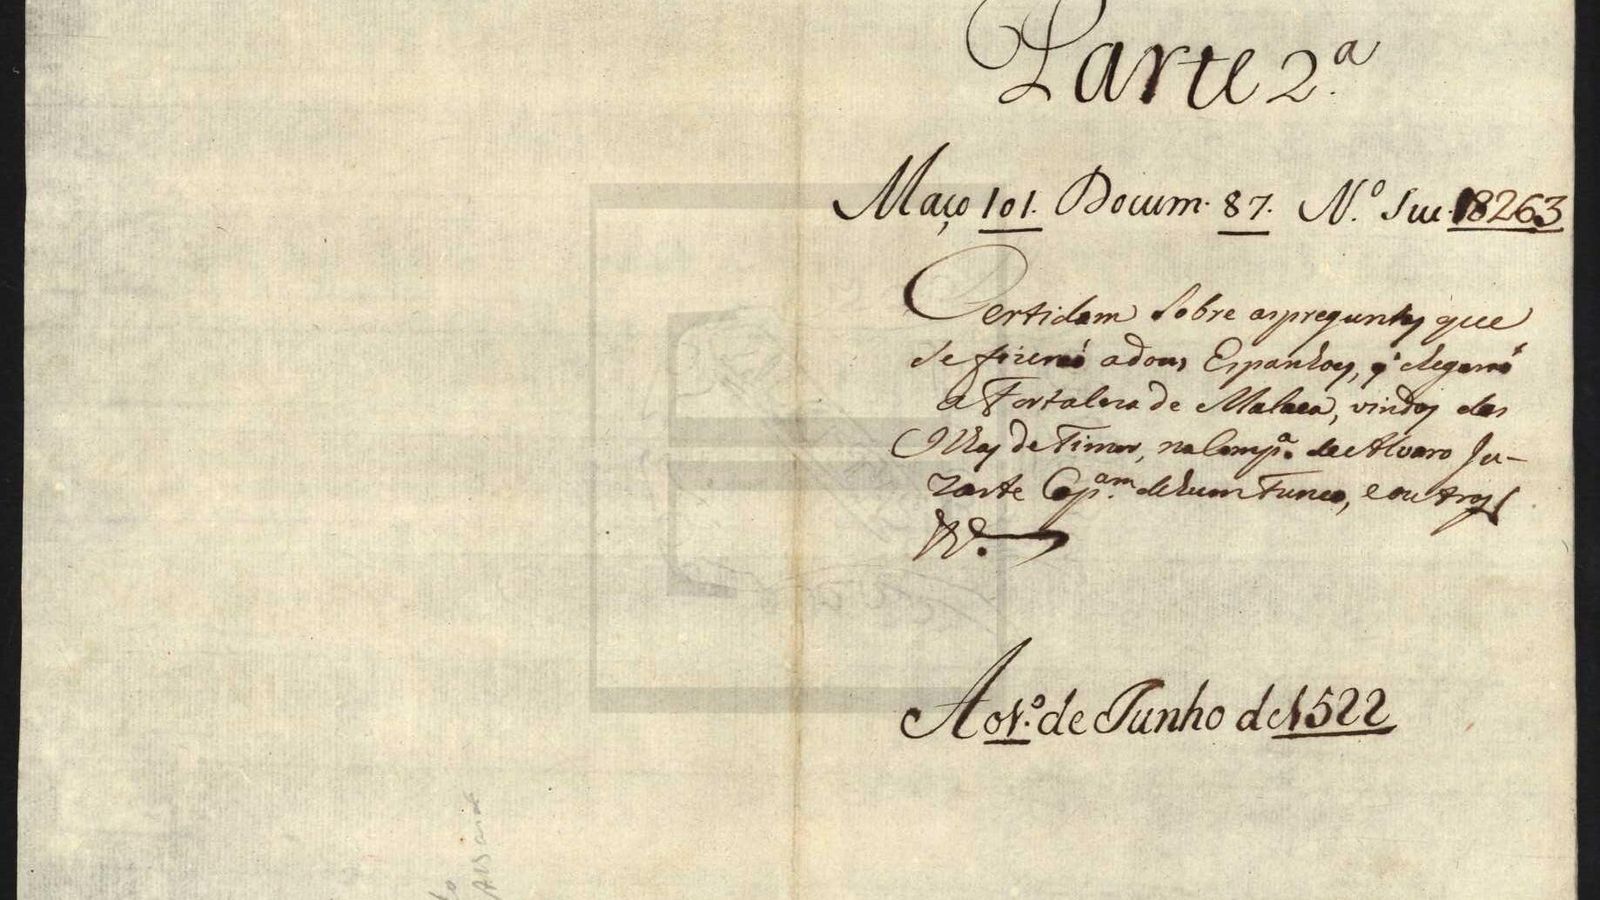 Parte 2.ª
Maço 101. Docum. 87. N.º Suc. 18263
Certidam Sobre as preguntas que
se fizeraó a dous Espanhoes, q̃ chegaraó
a Fortaleza de Malaca, vindos das
Ilhas de Timor, na Comp.ª de Alvaro Ju-
zarte Cap.am de hum Junco, e outros
A o 1.º de Junho de 1522